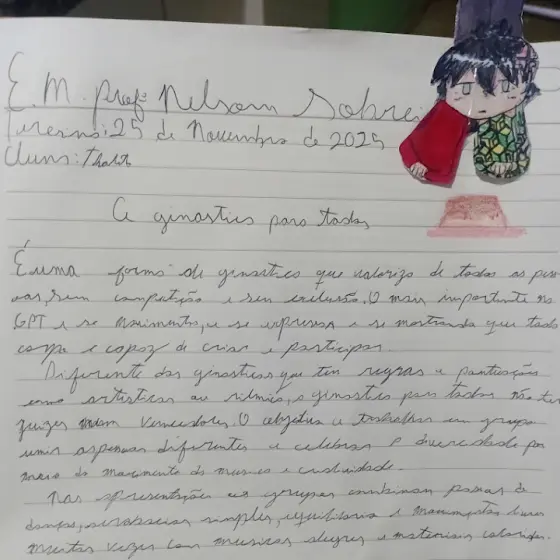 E. M. profº Nelson Sobrei
Teresina: 25 de Novembro de 2025
Aluno: Thalit
A ginastica para todos
É uma forma de ginastica que valoriza de todas as pes
oas, sem competição e sem exclusão. O mais importante na
GPT e se movimentar, e se expressa e se mostrando que todo
corpo e capaz de criar e participar.
Diferente das ginasticas que tem regras e pontuações
como artisticas ou ritmica, a ginastica para todos não tem
juizes nem vencedores. O objetivo e trabalhar em grupo
unir pessoas diferentes e celebrar a diversidade por
meio do movimento da musica e criatividade.
Nas apresentação os grupos combinam passos de
danças, acrobacias simples, equilibrio e movimentos livres
muitas vezes com musicas alegres e materiais coloridos.